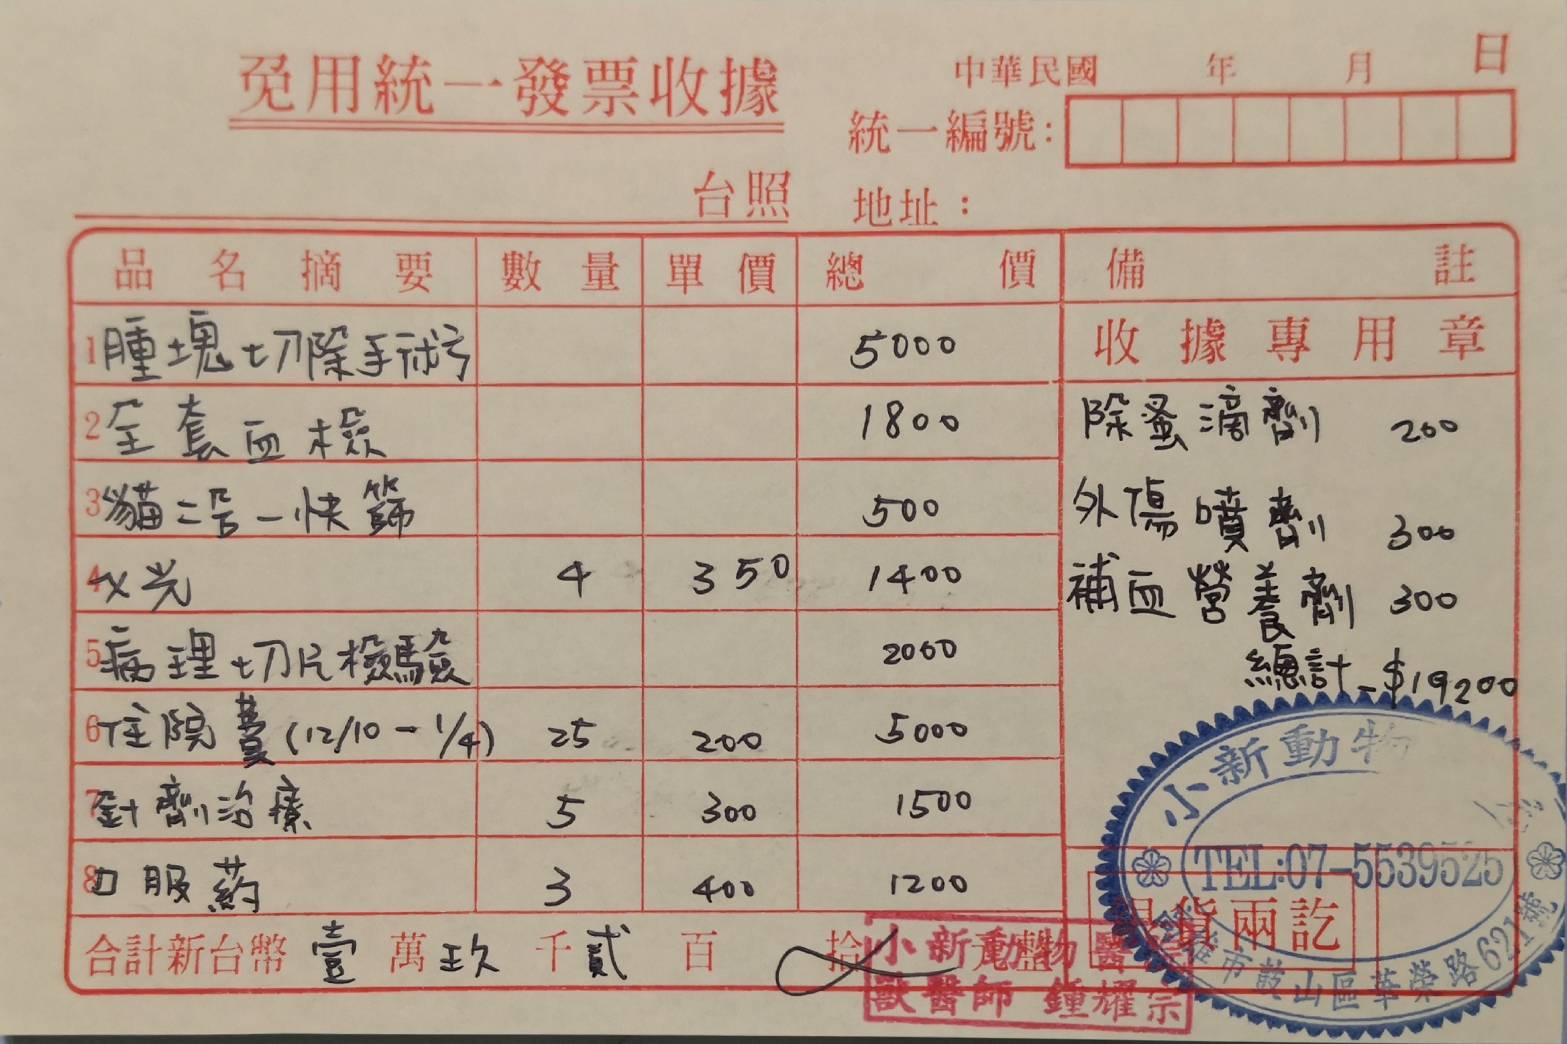 免用統一發票收據
中華民國 年 月 日
統一編號:
台照 地址：
品名摘要 數量 單價 總價 備註
收據專用章
1 腫塊切除手術 5000
2 全套血檢 1800
3 貓二合一快篩 500
4 X光 4 350 1400
5 病理切片檢驗 2000
6 住院費(12/10-1/4) 25 200 5000
7 針劑治療 5 300 1500
8 口服葯 3 400 1200
除蚤滴劑 200
外傷噴劑 300
補血營養劑 300
總計 $19200
合計新台幣 壹 萬 玖 千 貳 百 拾 元整
小新動物
TEL:07-5539525
市鼓山區華榮路621號
貨兩訖
小新動物醫
獸醫師 鍾耀宗